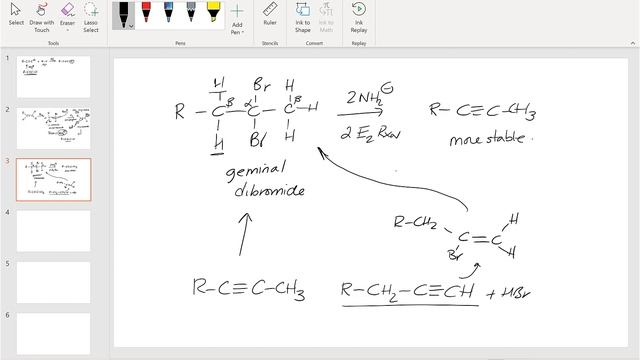 Select
Draw with Touch
Eraser
Lasso Select
Add Pen
Ruler
Ink to Shape
Ink to Math
Ink Replay
Tools
Pens
Stencils
Convert
Replay
1
2
3
4
5
6
H Br H
R - Cβ - Cα - Cβ - H
H Br H
2NH2⊖
2 E2 Rxn
R - C≡C - CH3
more stable.
geminal
dibromide
R-CH2
C=C
H
Br
H
R-C≡C-CH3
R-CH2-C≡CH + HBr